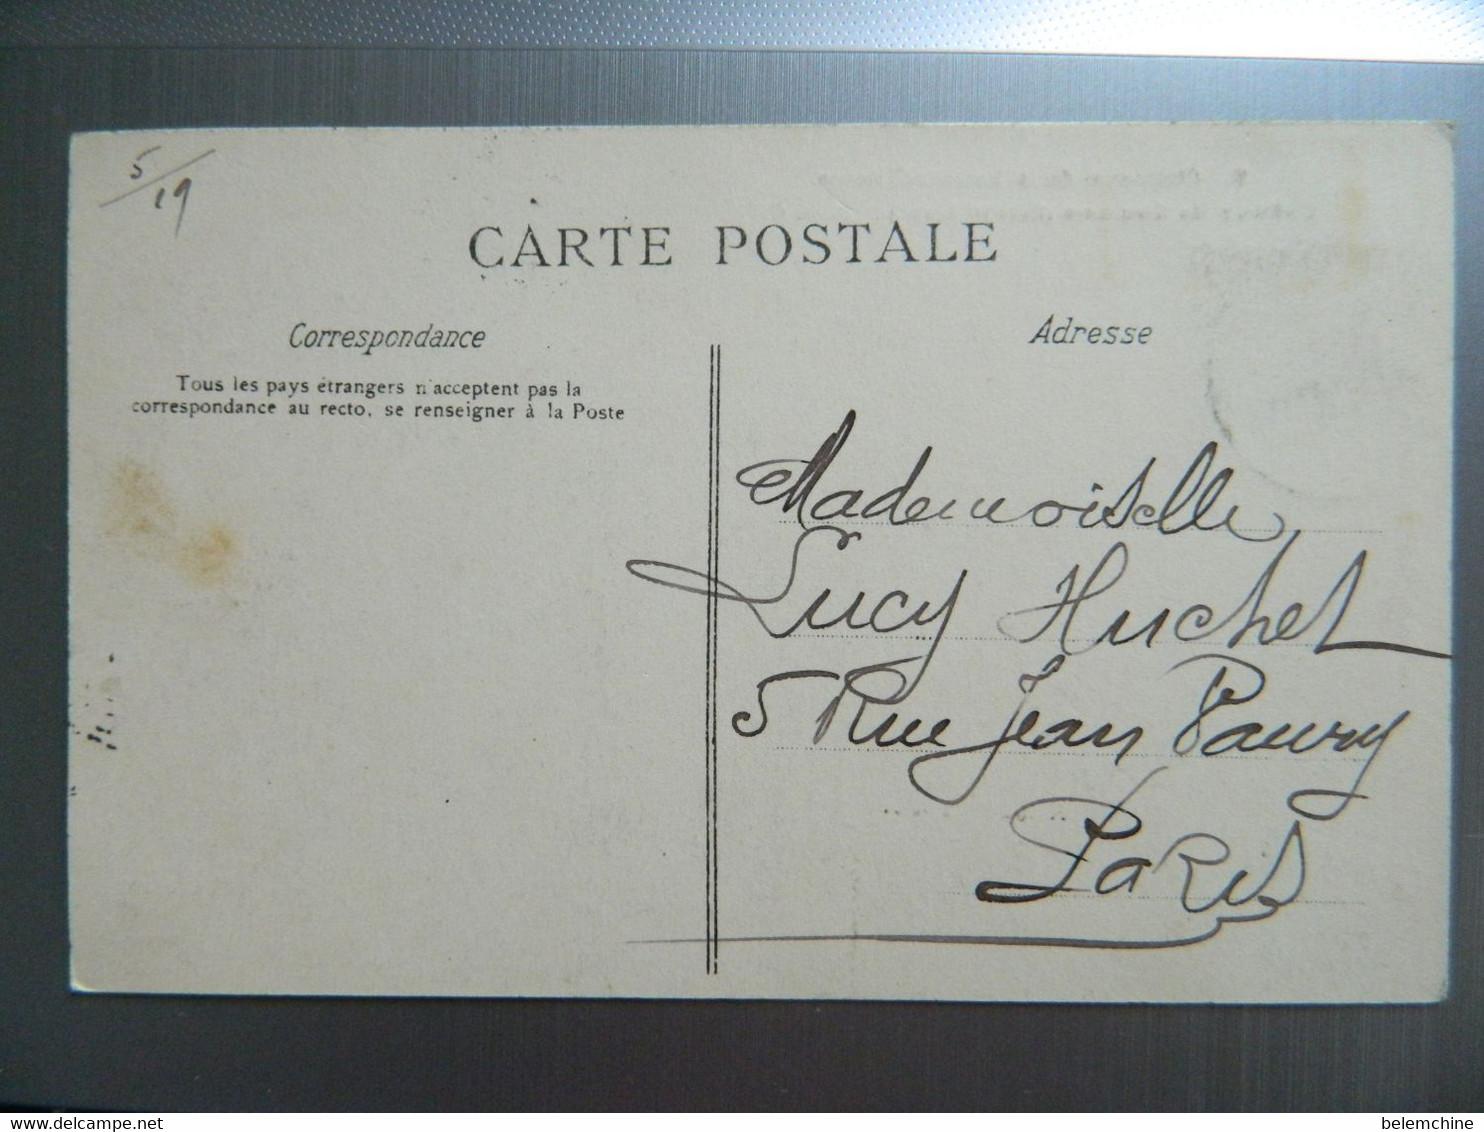 5/19
CARTE POSTALE
Correspondance
Tous les pays étrangers n'acceptent pas la
correspondance au recto, se renseigner à la Poste
Adresse
Mademoiselle
Lucy Huchet
5 Rue Jean Paury
Paris
delcampe.net
belemchine